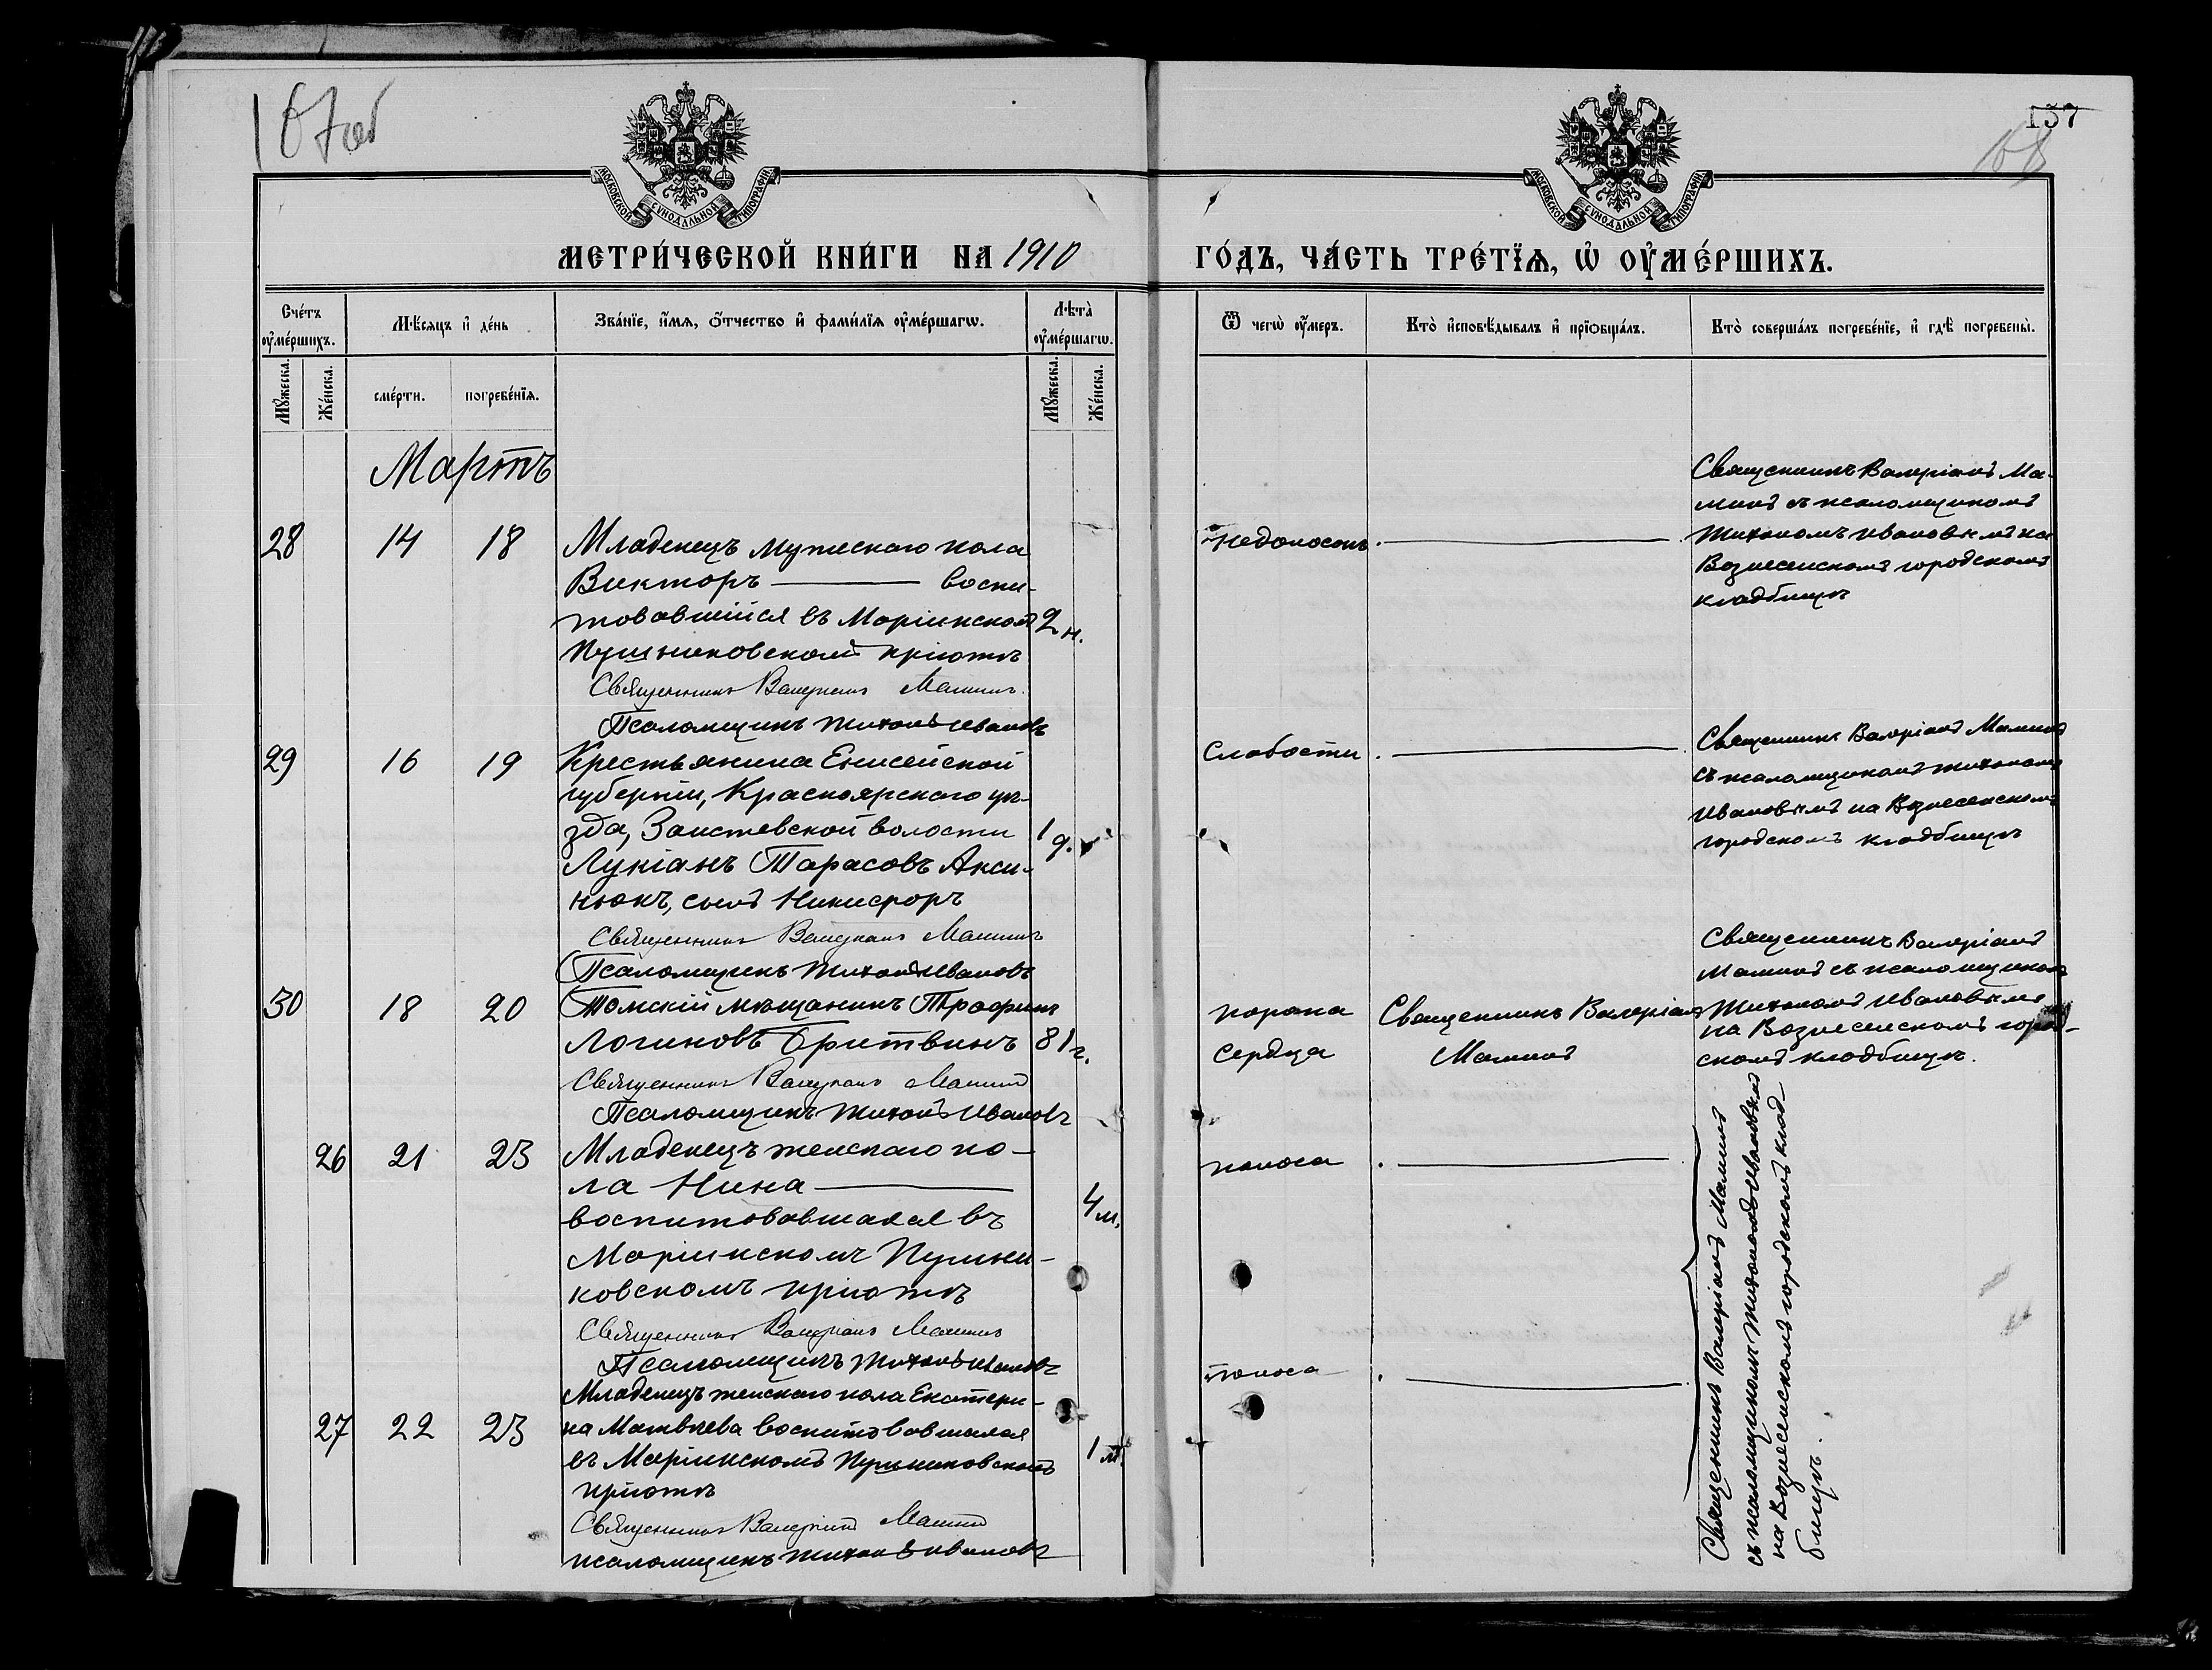 167об
137
168
МОСКОВСКОЙ СѴНОДАЛЬНОЙ ТИПОГРАФІИ
МОСКОВСКОЙ СѴНОДАЛЬНОЙ ТИПОГРАФІИ
МЕТРИ́ЧЕСКОЙ КНИ́ГИ НА 1910 ГО́ДЪ, ЧА́СТЬ ТРЕ́ТЇѦ, Ѡ҆ ОУ҆МЕ́РШИХЪ.
Сче́тъ оу҆ме́ршихъ.
Мꙋ́жеска.
Же́нска.
Мѣ́сяцъ и҆ де́нь
сме́рти.
погребе́нїѧ.
Зва́нїе, и҆́мѧ, ѻ҆́тчество и҆ фами́лїѧ оу҆ме́ршагѡ.
Лѣ́та̀ оу҆ме́ршагѡ.
Мꙋ́жеска.
Же́нска.
Ѿ чегѡ̀ оу҆́меръ.
Кто̀ и҆сповѣ́дывалъ и҆ прїѡбща́лъ.
Кто̀ соверша́лъ погребе́нїе, и҆ гдѣ̀ погребены̀.
Мартъ
28 14 18
Младенецъ мужескаго пола
Викторъ — воспи-
товавшійся въ Маріинскомъ
Пушниковскомъ пріютѣ
2 н.
Священникъ Валеріанъ Маминъ
Псаломщикъ Тихонъ Ивановъ
недоносокъ. —
Священникъ Валеріанъ Ма-
минъ съ псаломщикомъ
Тихономъ Ивановымъ на
Вознесенскомъ городскомъ
кладбищѣ
29 16 19
Крестьянина Енисейской
губерніи, Красноярскаго уѣ-
зда, Заистевской волости
Лукіанъ Тарасовъ Акси-
нюкъ, сынъ Никифоръ
1 д.
Священникъ Валеріанъ Маминъ
Псаломщикъ Тихонъ Ивановъ
слабости. —
Священникъ Валеріанъ Маминъ
съ псаломщикомъ Тихономъ
Ивановымъ на Вознесенскомъ
городскомъ кладбищѣ
30 18 20
Томскій мѣщанинъ Трофимъ
Логиновъ Бритвинъ
81 г.
Священникъ Валеріанъ Маминъ
Псаломщикъ Тихонъ Ивановъ
порока
сердца
Священникъ Валеріанъ
Маминъ
Священникъ Валеріанъ
Маминъ съ псаломщикомъ
Тихономъ Ивановымъ
на Вознесенскомъ город-
скомъ кладбищѣ.
26 21 23
Младенецъ женскаго по-
ла Нина —
воспитовавшаяся въ
Маріинскомъ Пушни-
ковскомъ пріютѣ
4 м.
Священникъ Валеріанъ Маминъ
Псаломщикъ Тихонъ Ивановъ
поноса. —
27 22 23
Младенецъ женскаго пола Екатери-
на Матвѣева воспитовавшаяся
въ Маріинскомъ Пушниковскомъ
пріютѣ
1 м.
Священникъ Валеріанъ Маминъ
псаломщикъ Тихонъ Ивановъ
поноса. —
Священникъ Валеріанъ Маминъ
съ псаломщикомъ Тихономъ Ивановымъ
на Вознесенскомъ городскомъ клад-
бищѣ.